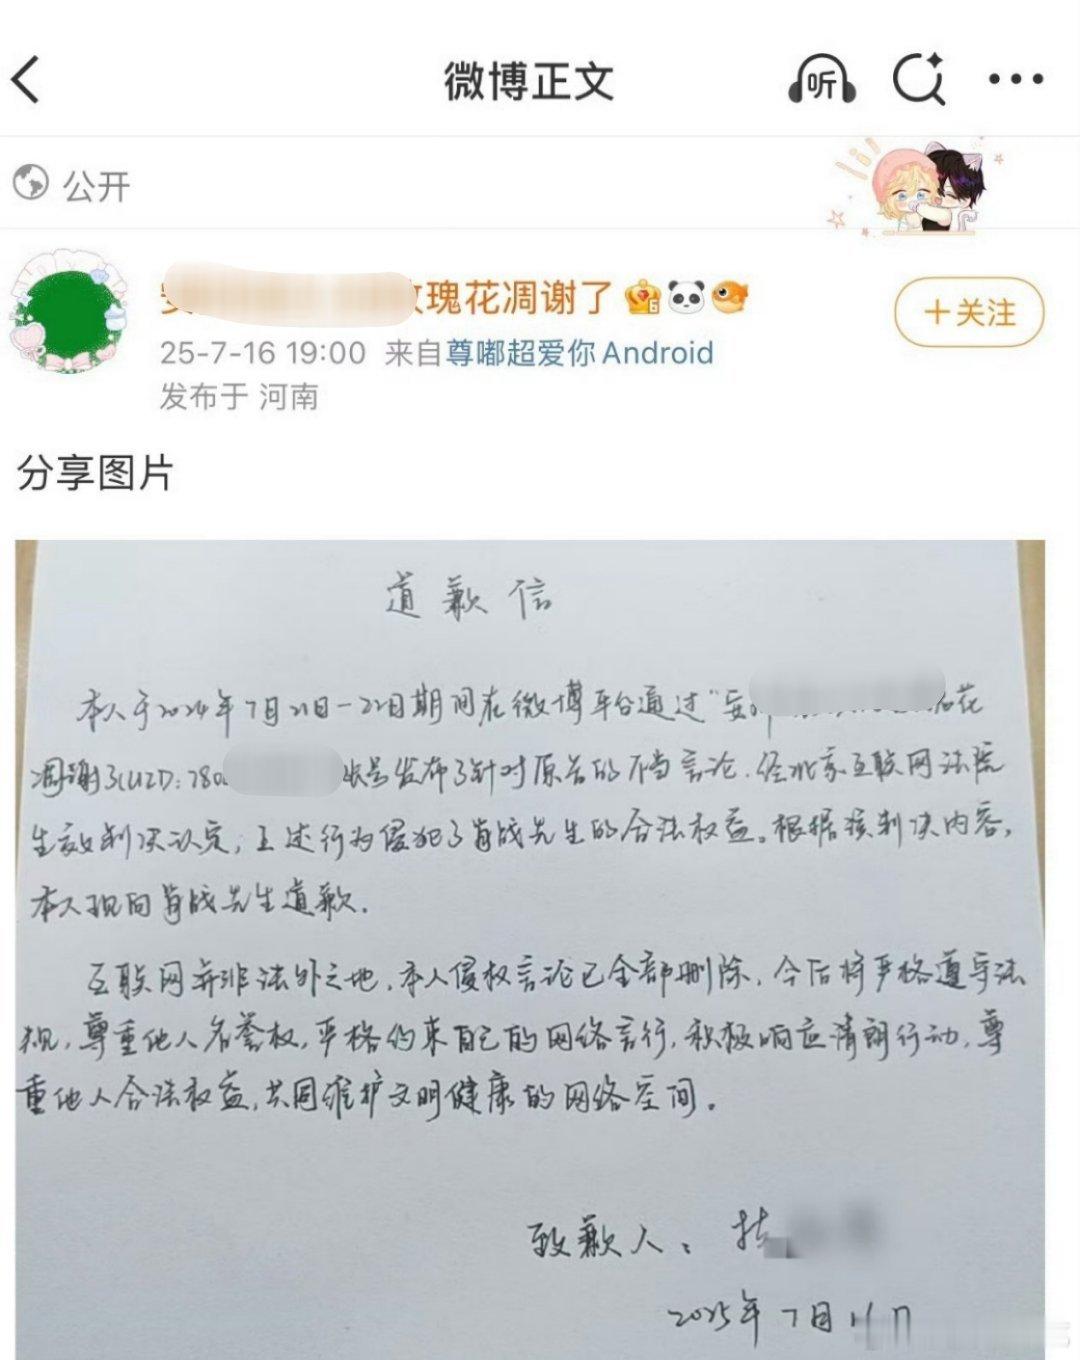 微博正文
听
公开
瑰花凋谢了
+关注
25-7-16 19:00 来自尊嘟超爱你Android
发布于 河南
分享图片
道歉信
本人于2024年7月21日-22日期间在微博平台通过"安 花
凋谢了(UID:780 账号发布了针对原告的不当言论,经北京互联网法院
生效判决认定,上述行为侵犯了肖战先生的合法权益。根据该判决内容,
本人现向肖战先生道歉.
互联网并非法外之地,本人侵权言论已全部删除,今后将严格遵守法
规,尊重他人名誉权,严格约束自己的网络言行,积极响应清朗行动,尊
重他人合法权益,共同维护文明健康的网络空间。
致歉人:
2025年7月